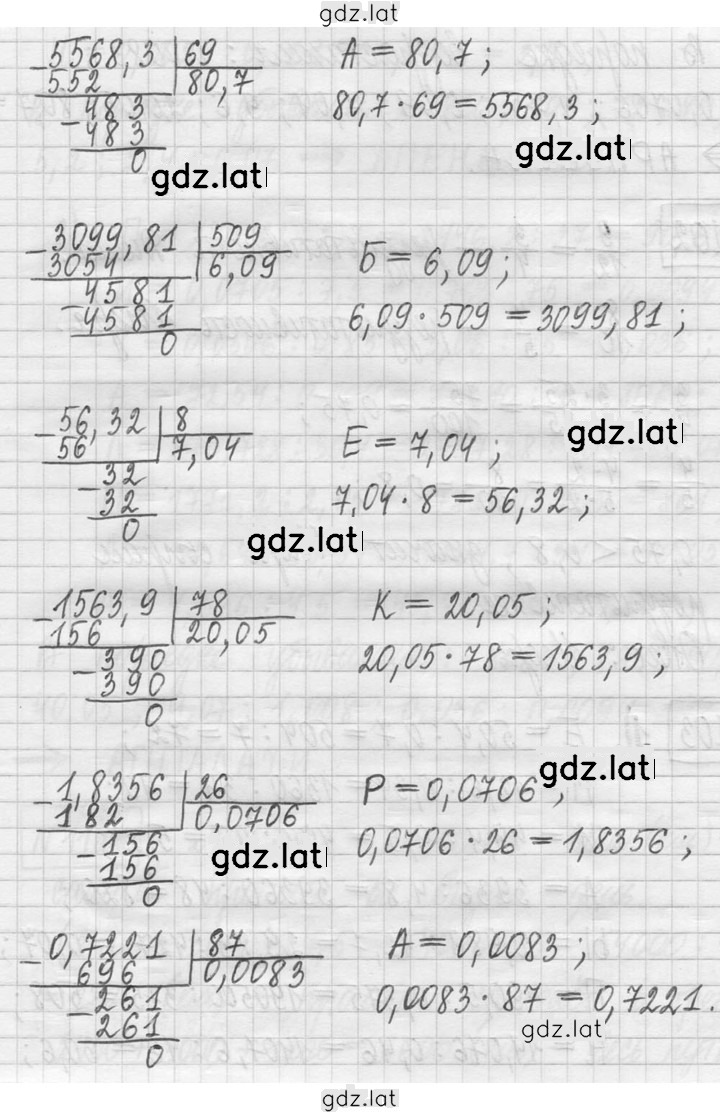 gdz.lat
5568,3 | 69 A = 80,7 ;
552 80,7 80,7 · 69 = 5568,3 ;
483
483
0
gdz.lat gdz.lat
3099,81 | 509 Б = 6,09 ;
3054 6,09 6,09 · 509 = 3099,81 ;
4581
4581
0
56,32 | 8 gdz.lat
56 7,04 Е = 7,04 ;
32 7,04 · 8 = 56,32 ;
32
0
gdz.lat
1563,9 | 78 К = 20,05 ;
156 20,05 20,05 · 78 = 1563,9 ;
390
390
0
gdz.lat
1,8356 | 26 Р = 0,0706 ;
182 0,0706 0,0706 · 26 = 1,8356 ;
156
156
0
gdz.lat
0,7221 | 87 А = 0,0083 ;
696 0,0083 0,0083 · 87 = 0,7221.
261
261
0
gdz.lat
gdz.lat